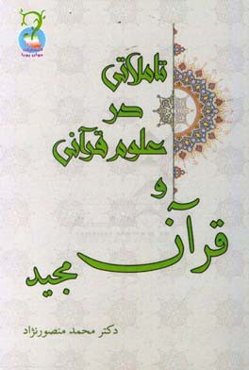 تاملاتی
در
علوم قرآنی
و
قرآن مجید
دکتر محمد منصورنژاد
جوان پویا